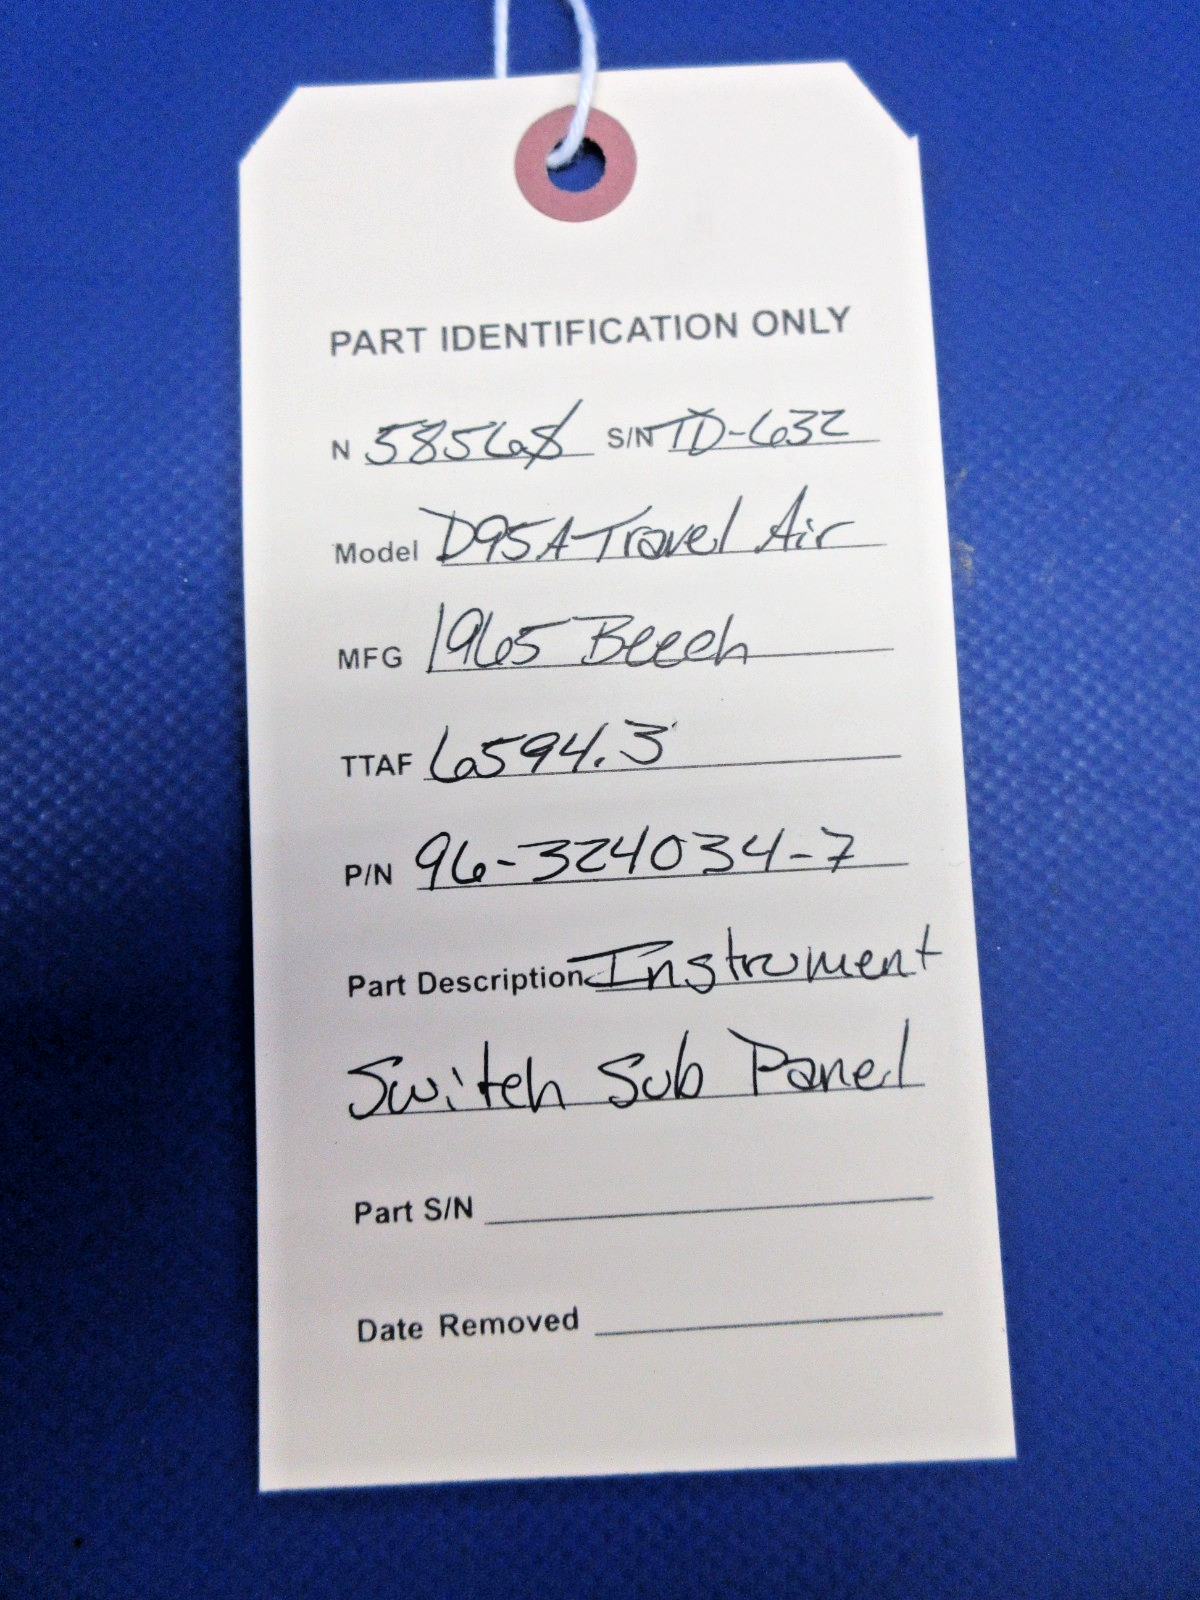 PART IDENTIFICATION ONLY
N 5856S S/N TD-632
Model D95A Travel Air
MFG 1965 Beech
TTAF 6594.3
P/N 96-324034-7
Part Description Instrument
Switch Sub Panel
Part S/N
Date Removed